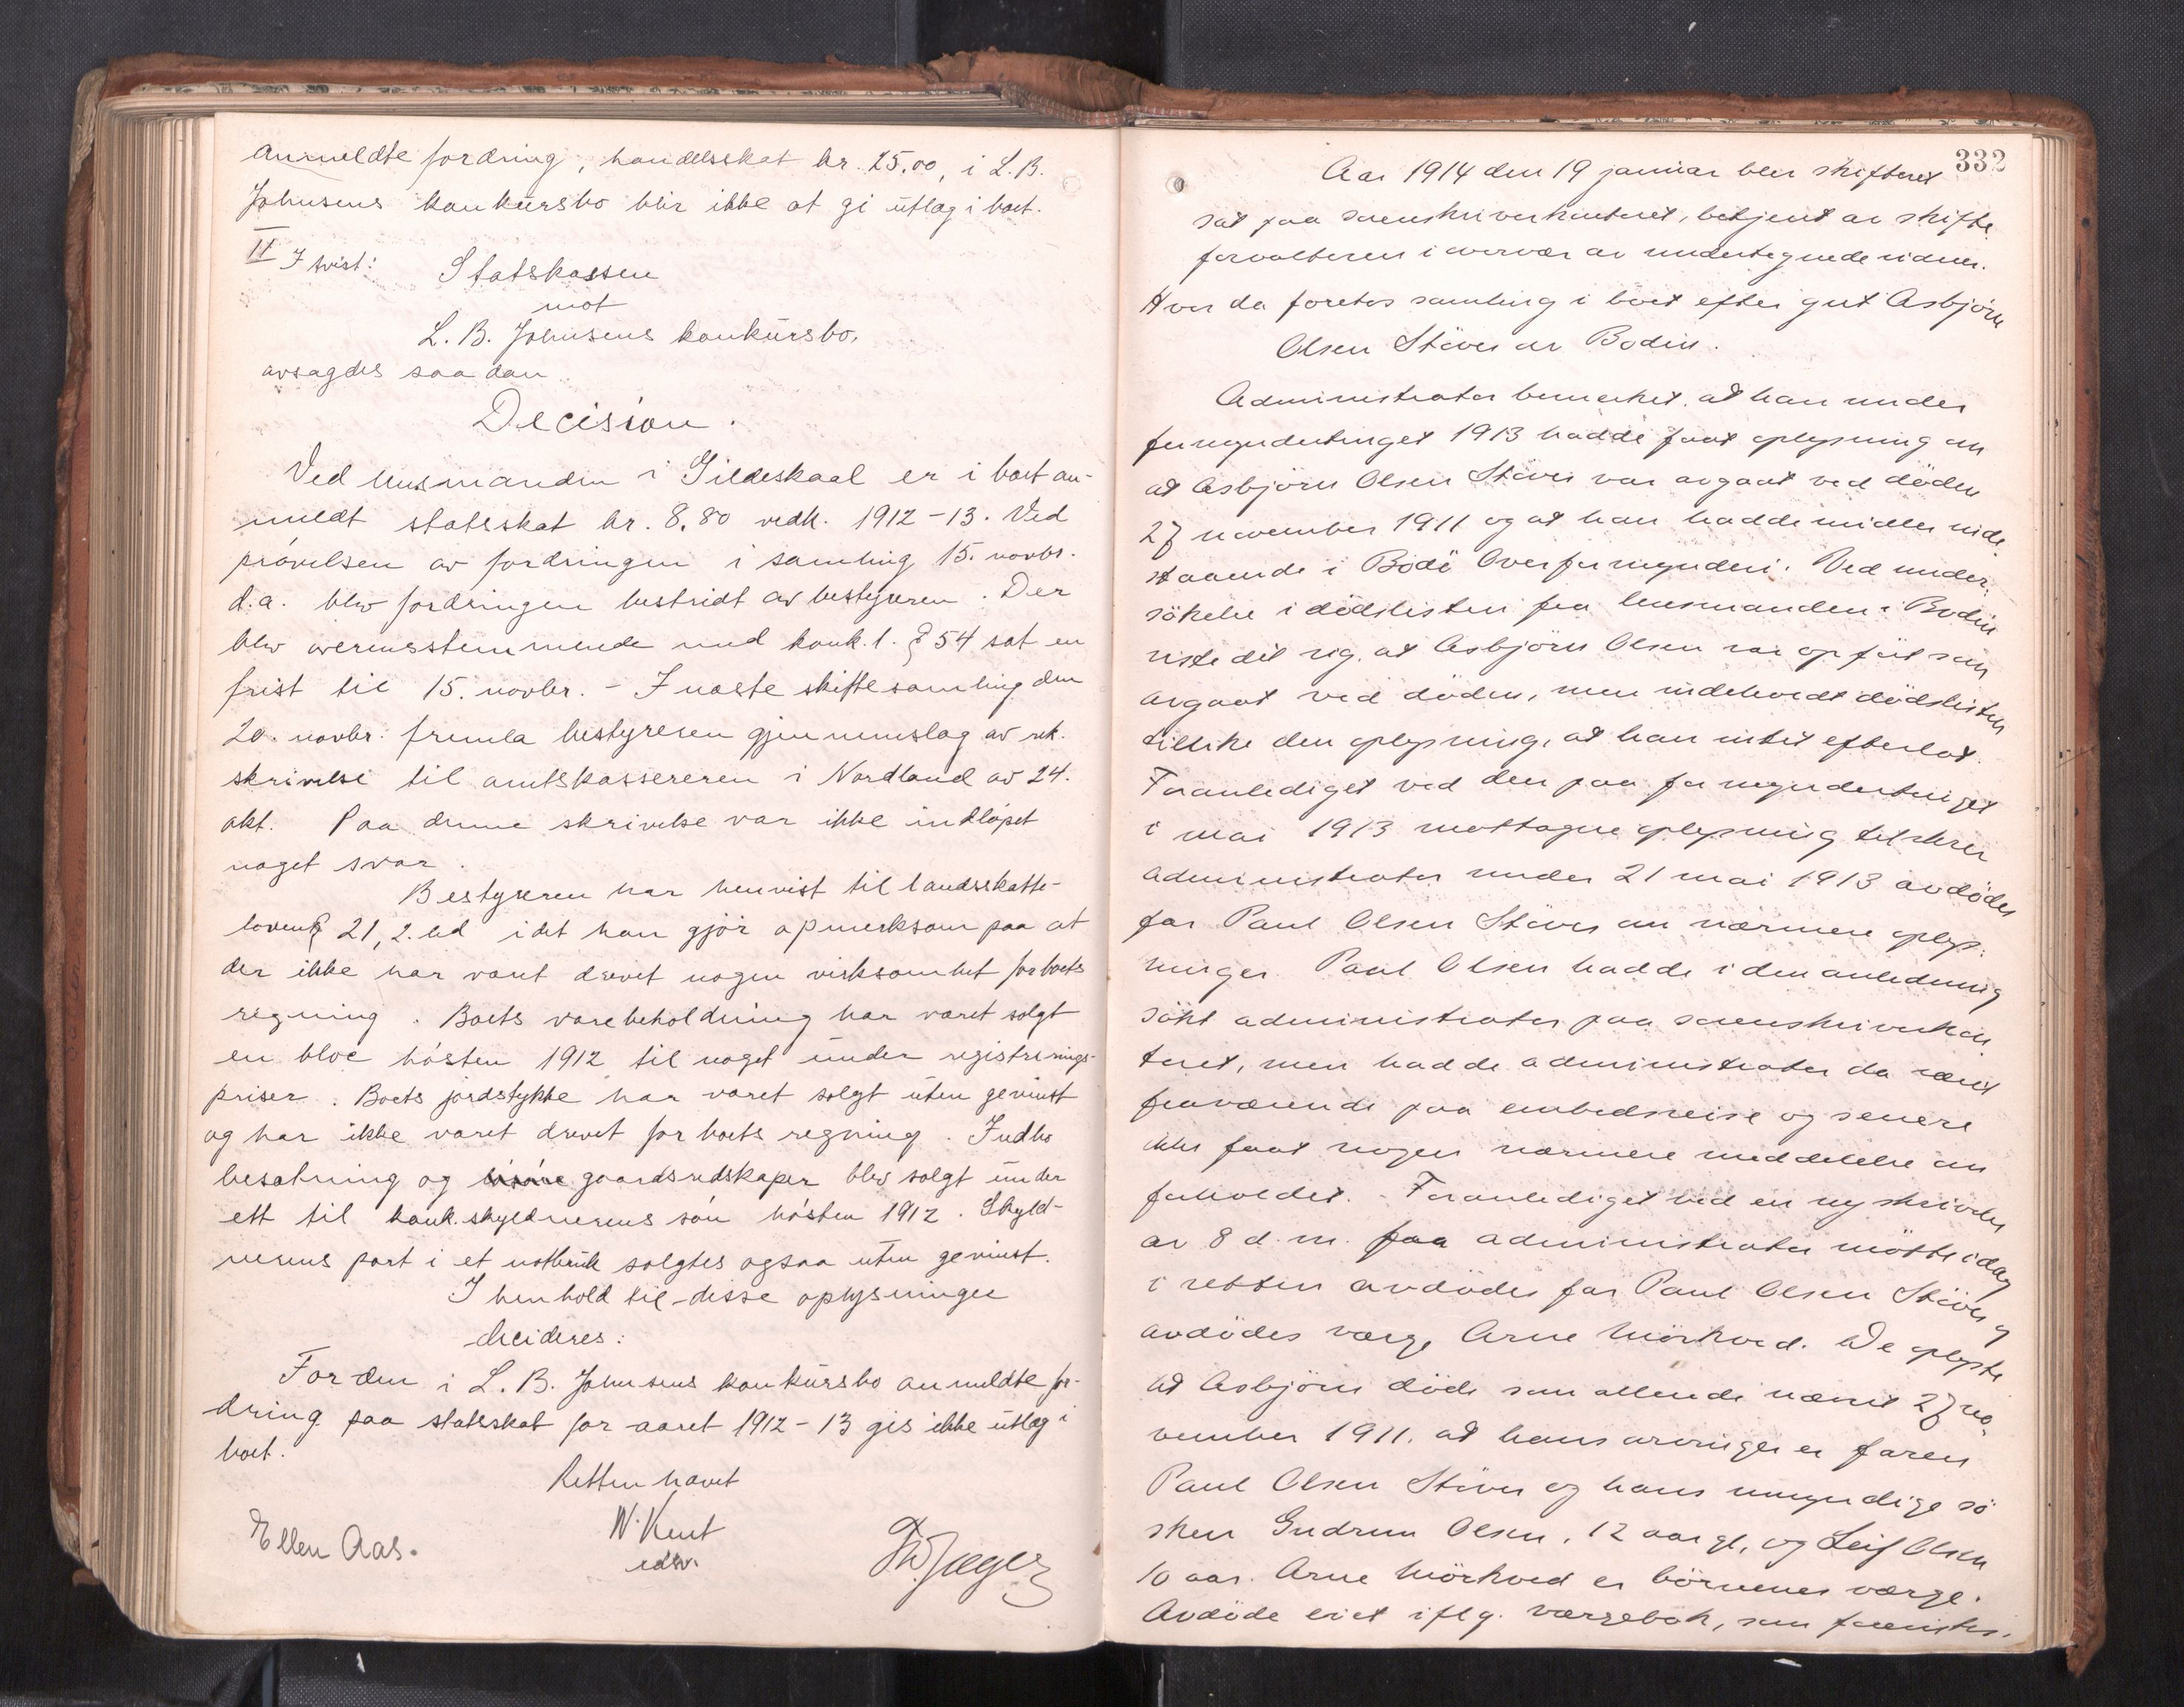 anmeldte fordring, handelsskat kr. 25,00, i L. B.
Johnsens konkursbo blir ikke at gi utlæg i boet.
II I tvist: Statskassen
mot
L. B. Johnsens konkursbo,
avsagdes saadan
Decision.
Ved lensmanden i Gildeskaal er i boet an-
meldt statsskat kr. 8,80 vedk. 1912-13. Ved
prøvelsen av fordringen i samling 15. novbr.
d.a. blev fordringen bestridt av bestyreren. Der
blev overensstemmende med konk.l. § 54 sat en
frist til 15. novbr. - I næste skiftesamling den
20. novbr. fremla bestyreren gjennemslag av rek.
skrivelse til amtskassereren i Nordland av 24.
okt. Paa denne skrivelse var ikke indløpet
noget svar.
Bestyreren har henvist til landsskatte-
lovens § 21, 2. led idet han gjør opmerksom paa at
der ikke har været drevet nogen virksomhet for boets
regning. Boets varebeholdning har været solgt
en bloc høsten 1912 til noget under registrerings-
priser. Boets jordstykke har været solgt uten gevinst
og har ikke været drevet for boets regning. Indbo
besætning og gaardsredskaper blev solgt under
ett til konk.skyldnerens søn høsten 1912. Skyld-
nerens part i et notbruk solgtes ogsaa uten gevinst.
I henhold til disse oplysninger
decideres:
For den i L. B. Johnsens konkursbo anmeldte for-
dring paa statsskat for aaret 1912-13 gis ikke utlæg i
boet.
Retten hævet
Ellen Aas. N. Kent Th. Jæger
edsv.
332
Aar 1914 den 19 januar blev skifteret
sat paa sorenskriverkontoret, betjent av skifte-
forvalteren i overvær av undertegnede vidner.
Hvor da foretos samling i boet efter gut Asbjørn
Olsen Støver av Bodin.
Administrator bemerket, at han under
formyndertinget 1913 hadde faat oplysning om
at Asbjørn Olsen Støver var avgaat ved døden
27 november 1911 og at han hadde midler inde-
staaende i Bodø Overformynderi. Ved under-
søkelse i dødslisten fra lensmanden i Bodin
viste det sig, at Asbjørn Olsen var opført som
avgaat ved døden, men indeholdt dødslisten
tillike den oplysning, at han intet efterlot.
Foranlediget ved den paa formyndertinget
i mai 1913 mottagne oplysning tilskrev
administrator under 21 mai 1913 avdødes
far Paul Olsen Støver om nærmere oplys-
ninger. Paul Olsen hadde i den anledning
søkt administrator paa sorenskriverkon-
toret, men hadde administrator da været
fraværende paa embedsreise og senere
ikke faat nogen nærmere meddelelse om
forholdet. - Foranlediget ved en ny skrivelse
av 8 d.m. fra administrator møtte idag
i retten avdødes far Paul Olsen Støver og
avdødes værge Arne Mørkved. De oplyste
at Asbjørn døde som allerede nævnt 27 no-
vember 1911, at hans arvinger er faren
Paul Olsen Støver og hans umyndige sø-
sken Gudrun Olsen, 12 aar gl, og Leif Olsen
10 aar. Arne Mørkved er børnenes værge.
Avdøde eiet iflg. værgebok, som forevistes,